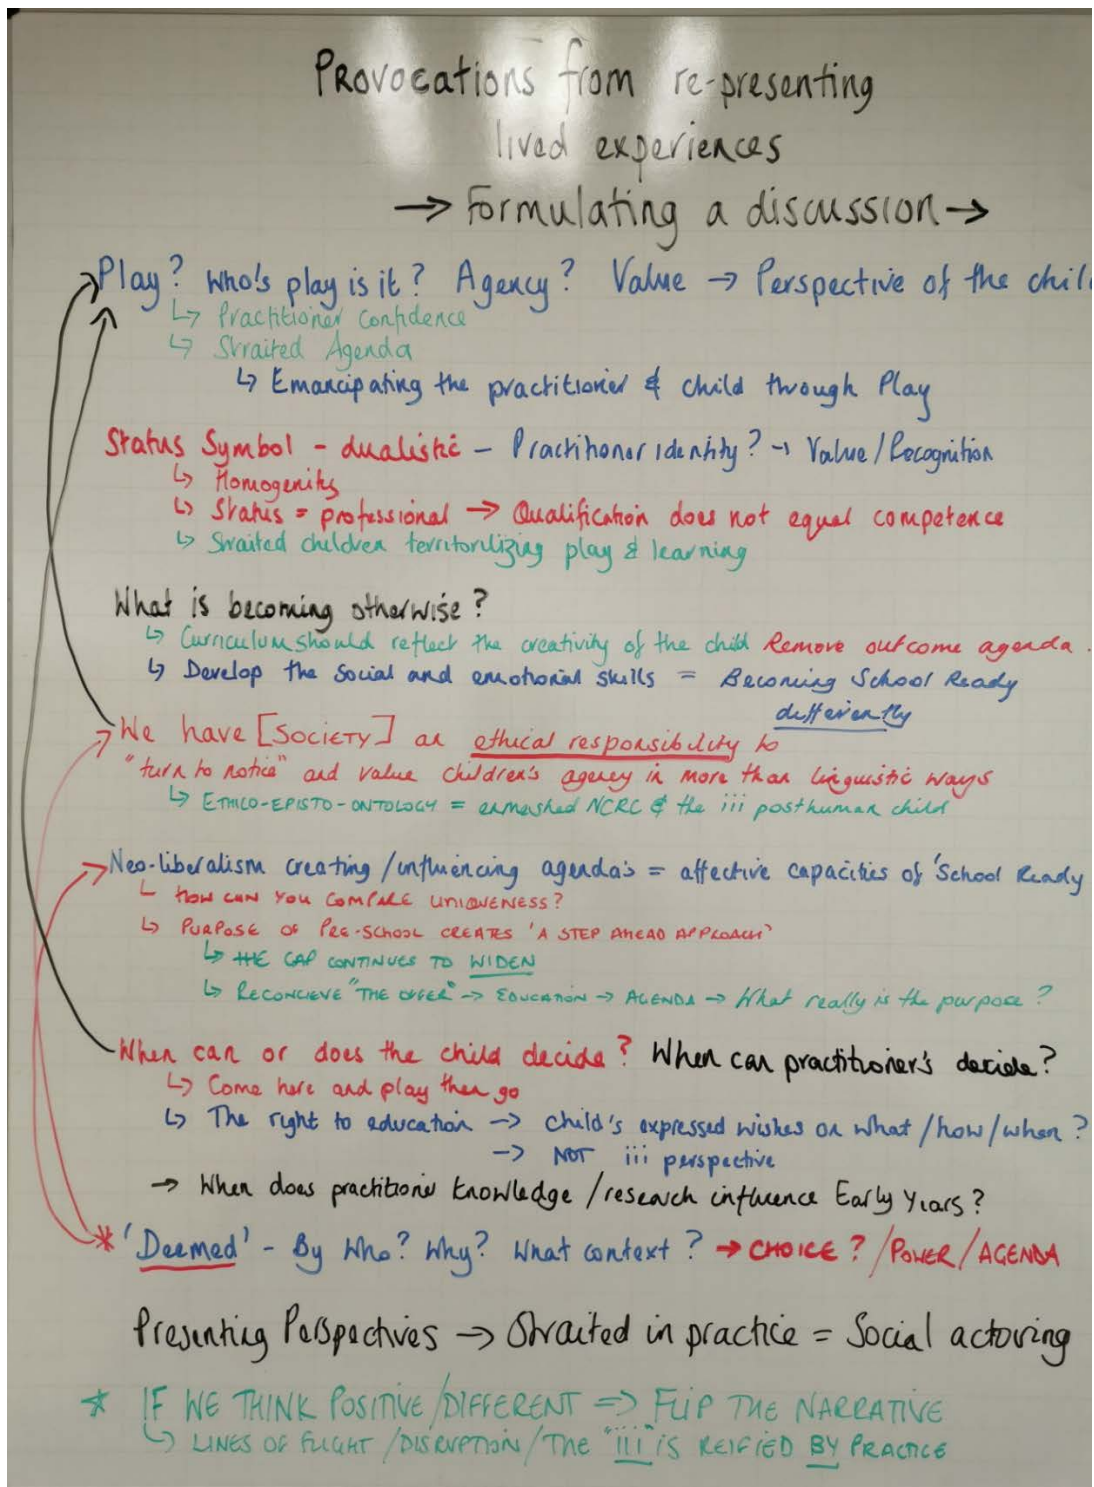 Provocations from re-presenting
lived experiences
→ Formulating a discussion →
Play? Who's play is it? Agency? Value → Perspective of the chil
↳ Practitioner Confidence
↳ Straited Agenda
↳ Emancipating the practitioner & child through Play
Status Symbol - dualistic - Practitioner identity? → Value/Recognition
↳ Homogenity
↳ Status = professional → Qualification does not equal competence
↳ Straited children territorilizing play & learning
What is becoming otherwise?
↳ Curriculum should reflect the creativity of the child Remove outcome agenda.
↳ Develop the social and emotional skills = Becoming School Ready
differently
We have [SOCIETY] an ethical responsibility to
"turn to notice" and value children's agency in more than linguistic ways
↳ ETHICO-EPISTO-ONTOLOGY = enmeshed NCRC & the iii posthuman child
Neo-liberalism creating/influencing agenda's = affective capacities of 'School Ready
↳ HOW CAN YOU COMPARE UNIQUENESS?
↳ PURPOSE OF PRE-SCHOOL CREATES 'A STEP AHEAD APPROACH'
↳ THE GAP CONTINUES TO WIDEN
↳ RECONCIEVE "THE OFFER" → EDUCATION → AGENDA → What really is the purpose?
When can or does the child decide? When can practitioner's decide?
↳ Come here and play then go
↳ The right to education → child's expressed wishes on what/how/when?
→ NOT iii perspective
→ When does practitioner knowledge/research influence Early Years?
* 'Deemed' - By Who? Why? What context? → CHOICE?/POWER/AGENDA
Presenting Perspectives → Straited in practice = Social actoring
* IF WE THINK POSITIVE/DIFFERENT => FLIP THE NARRATIVE
↳ LINES OF FLIGHT/DISRUPTION/THE "iii" IS REIFIED BY PRACTICE